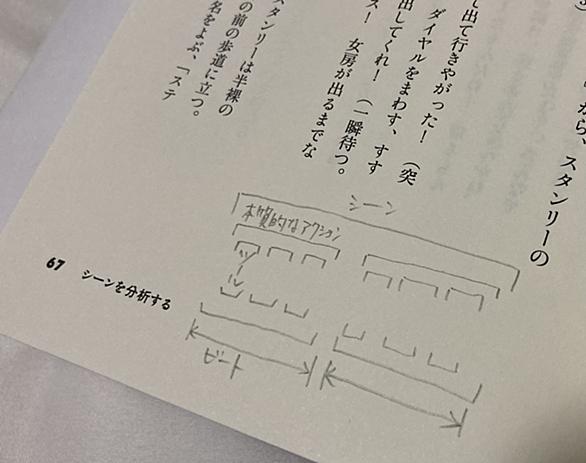 から、スタンリーの
て出て行きやがった！　（突
ダイヤルをまわす、すす
出してくれ！　（一瞬待つ。
ス！　女房が出るまでな
スタンリーは半裸の
の前の歩道に立つ。
名をよぶ、「ステ
シーン
本質的なアクション
ビート
67 シーンを分析する